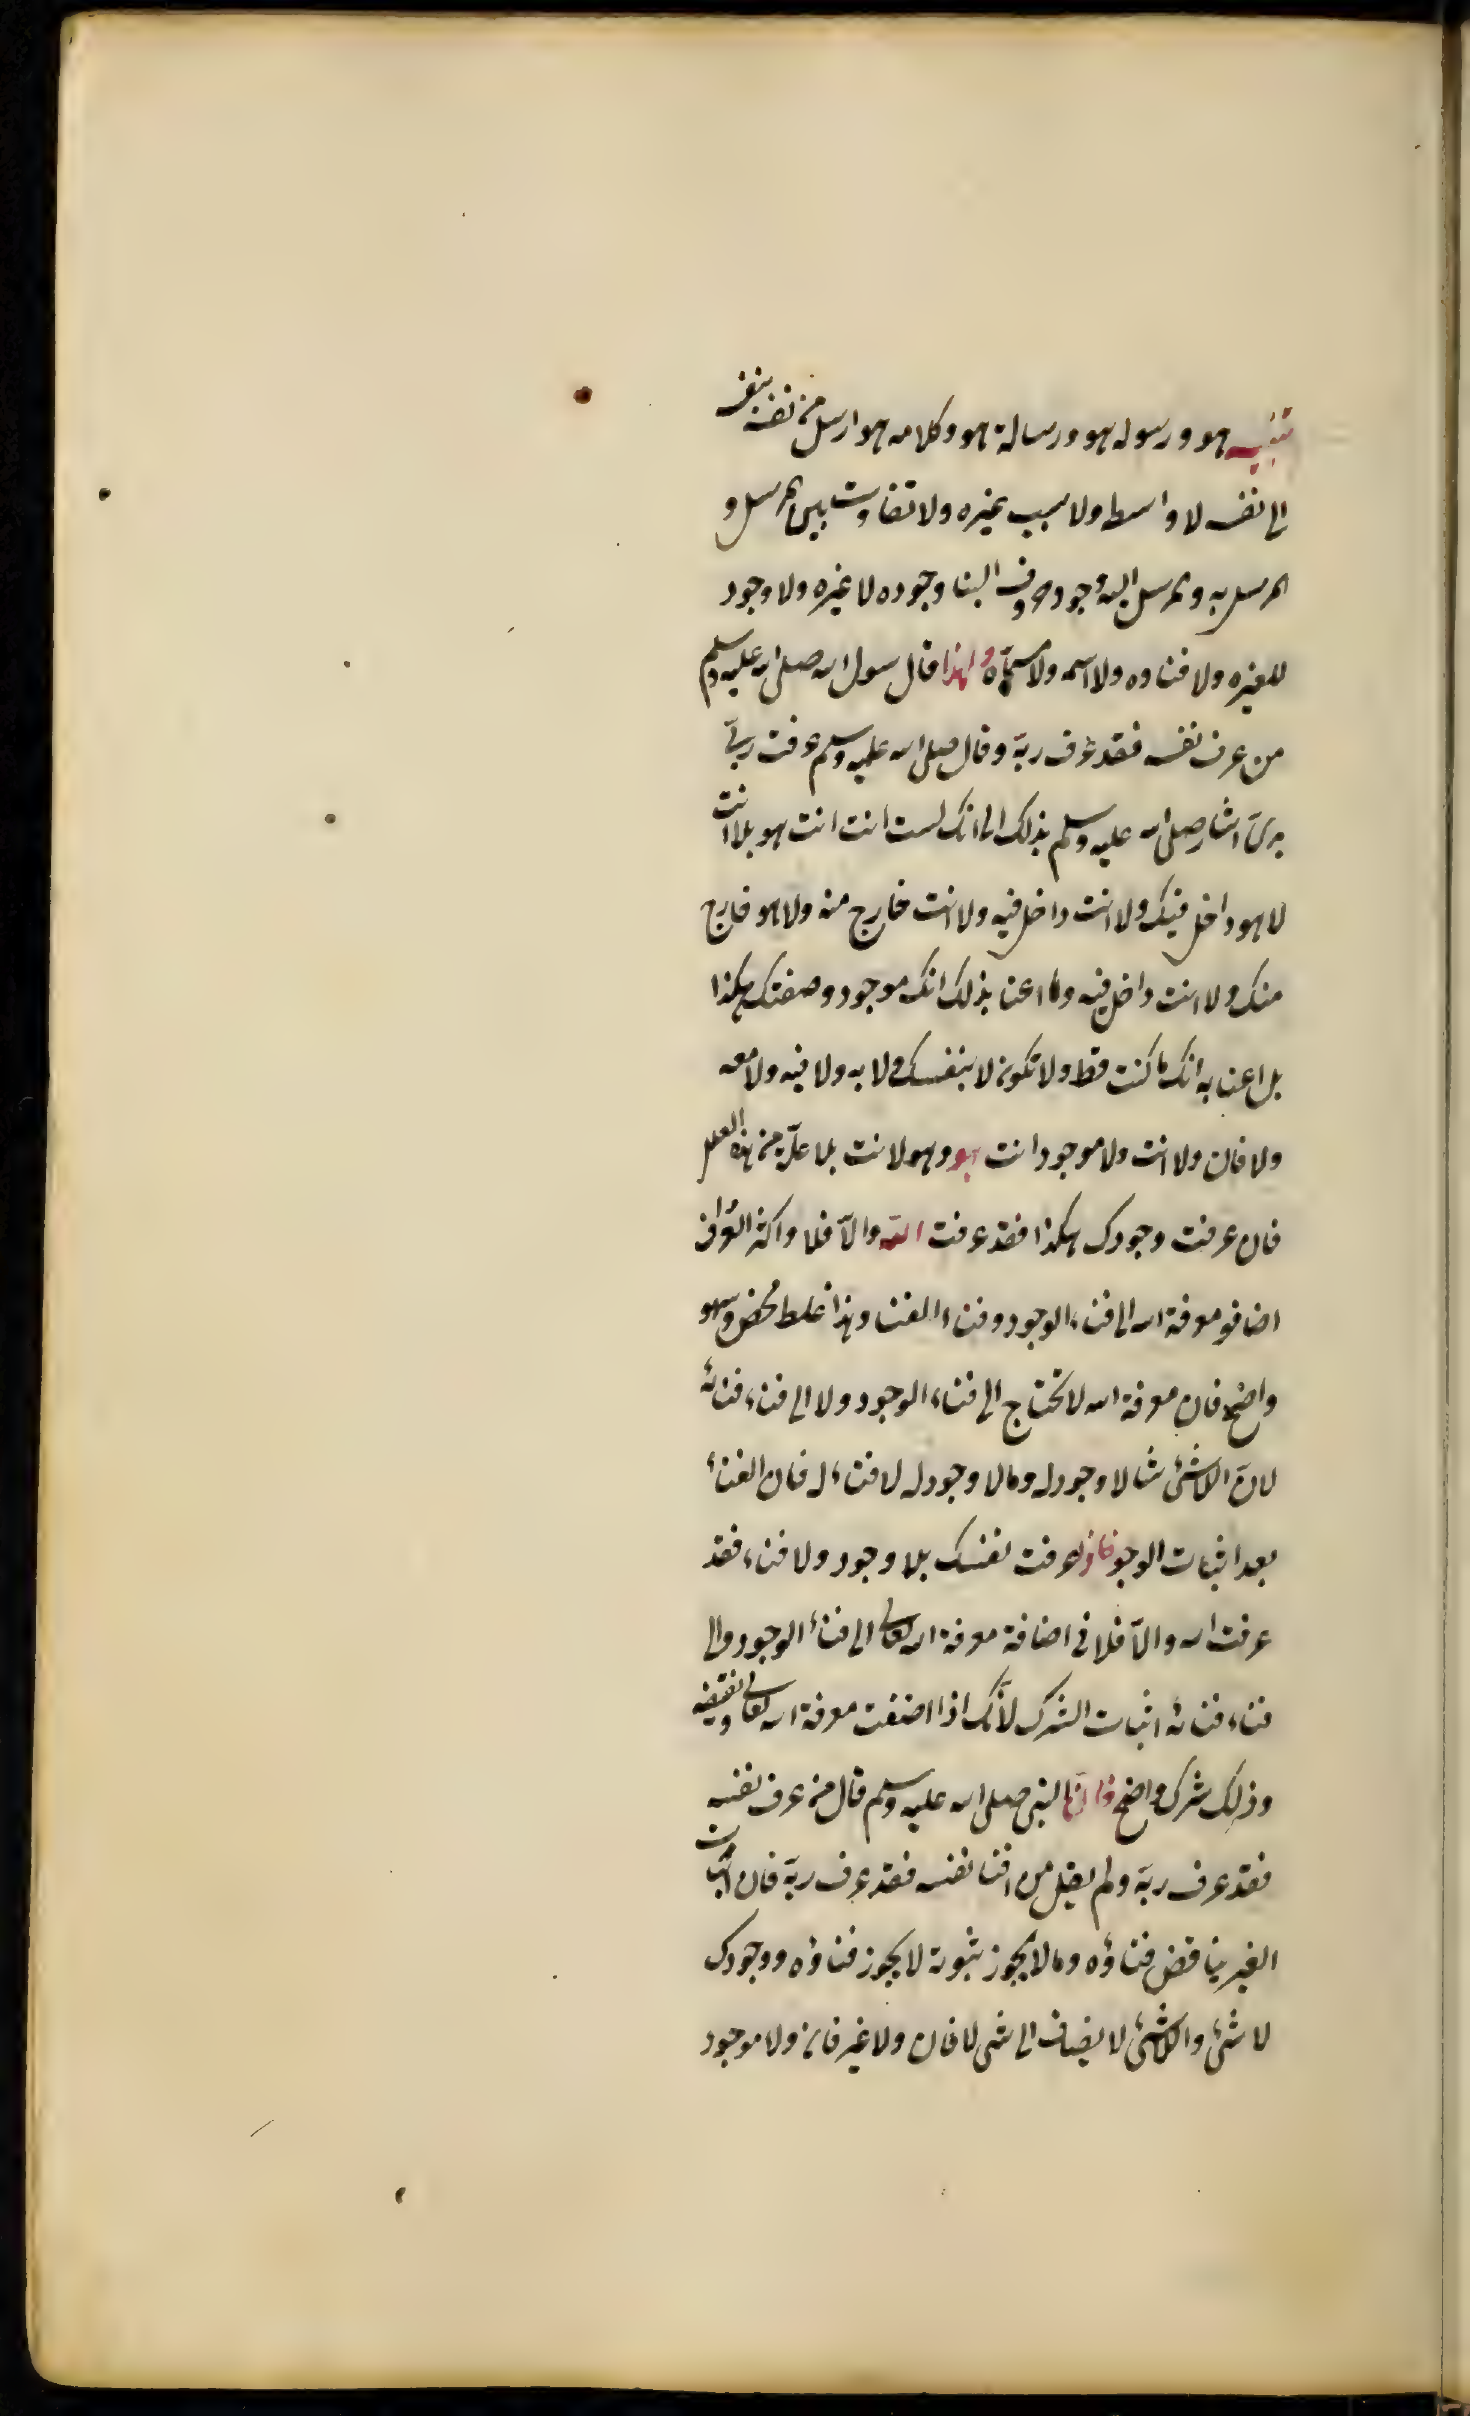 تنبيه هو ورسوله هو ورسالة هو وكلامه هو ارسل من نفسه بنفسه
الى نفسه لا واسط ولا سبب غيره ولا تفاوت بين المرسل و
المرسل به والمرسل اليه وجود حروف البنا وجوده لا غيره ولا وجود
للغيره ولا فناوه ولا اسمه ولا مسمّاه ولهذا قال سول الله صلى الله عليه وسلم
من عرف نفسه فقد عرف ربّه وقال صلى الله عليه وسلم عرفت ربّي
بربّي اشار صلى الله عليه وسلم بذلك الى انك لست انت انت هو بلا انت
لا هو داخل فيك ولا انت داخل فيه ولا انت خارج منه ولا هو خارج
منك ولا انت داخل فيه وما اعنا بذلك انك موجود وصفتك هكذا
بل اعنا به انك ما كنت قط ولا تكون لا بنفسك ولا به ولا فيه ولا معه
ولا فان ولا انت ولا موجود انت هو وهو لانت بلا علّة من هذه العلل
فان عرفت وجودك هكذا فقد عرفت الله والّا فلا واكثر العرّاف
اضافو معرفة الله الى فناء الوجود وفناء الفنا وهذا غلط محض وسهو
واضح فان معرفة الله لا تحتاج الى فناء الوجود ولا الى فناء فنائه
لانّ الاشئ شا لا وجود له وما لا وجود له لا فناء له فان الفناء
بعد اثبات الوجو فاذا عرفت نفسك بلا وجود ولا فناء فقد
عرفت الله والّا فلا فى اضافة معرفة الله تعالى الى فناء الوجود والى
فناء فنائه اثبات الشرك لأنّك اذا اضفت معرفة الله تعالى
وذلك شرك واضح فانّ النبى صلى الله عليه وسلم قال من عرف نفسه
فقد عرف ربّه ولم يقل من افنا نفسه فقد عرف ربّه فان اثبات
الغير يناقض فناؤه وما لا يجوز ثبوته لا يجوز فناؤه ووجودك
لا شئ والاشئ لا يضاف الى شى لا فان ولا غير فان ولا موجود